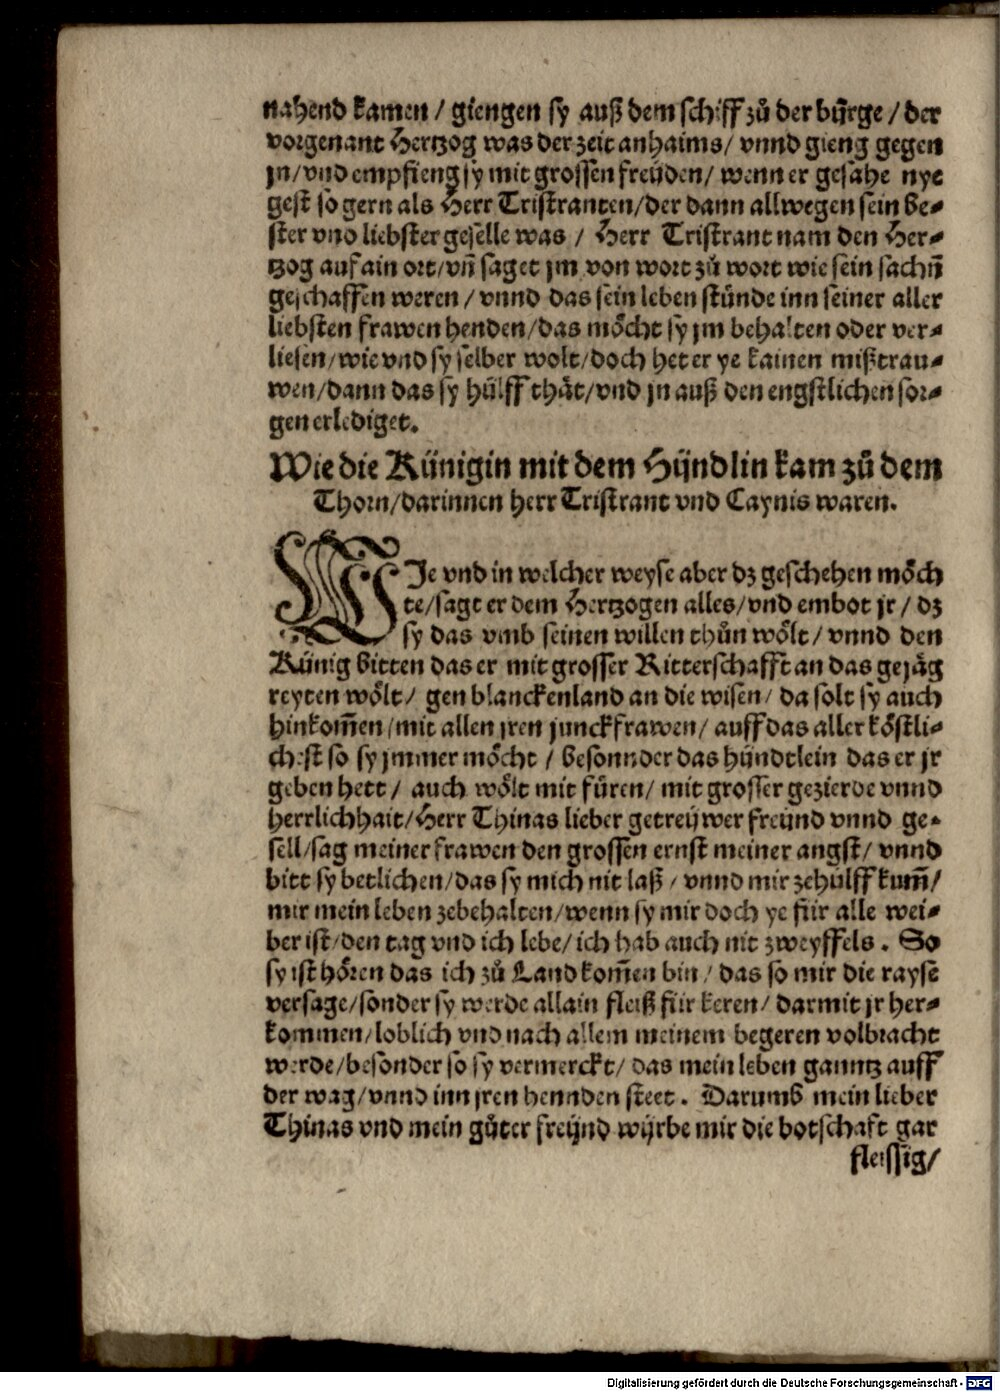 nahend kamen / giengen sy auß dem schiff zů der bürge / der
vorgenant Hertzog was der zeit anhaims / vnnd gieng gegen
jn / vnd empfieng sy mit grossen freüden / wenn er gesahe nye
gest so gern als Herr Tristranten / der dann allwegen sein be⸗
ster vnd liebster geselle was / Herr Tristrant nam den Her⸗
tzog auf ain ort / vñ saget jm von wort zů wort wie sein sachñ
geschaffen weren / vnnd das sein leben stünde inn seiner aller
liebsten frawen henden / das möcht sy jm behalten oder ver⸗
liesen / wie vnd sy selber wolt / doch het er ye kainen mißtrau⸗
wen / dann das sy hülff thät / vnd jn auß den engstlichen sor⸗
gen erlediget.
Wie die Künigin mit dem Hündlin kam zů dem
Thorn / darinnen herr Tristrant vnd Caynis waren.
WJe vnd in welcher weyse aber dz geschehen möch
te / sagt er dem Hertzogen alles / vnd embot jr / dz
sy das vmb seinen willen thůn wölt / vnnd den
Künig bitten das er mit grosser Ritterschafft an das gejäg
reyten wölt / gen blanckenland an die wisen / da solt sy auch
hinkom̃en / mit allen jren junckfrawen / auff das aller köstli⸗
chest so sy jmmer möcht / besonnder das hündtlein das er jr
geben hett / auch wölt mit füren / mit grosser gezierde vnnd
herrlichhait / Herr Thinas lieber getreüwer freünd vnnd ge⸗
sell / sag meiner frawen den grossen ernst meiner angst / vnnd
bitt sy betlichen / das sy mich nit laß / vnnd mir zehülff kum̃ /
mir mein leben zebehalten / wenn sy mir doch ye für alle wei⸗
ber ist / den tag vnd ich lebe / ich hab auch nit zweyffels. So
sy ist hören das ich zů Land kom̃en bin / das so mir die rayse
versage / sonder sy werde allain fleiß für keren / darmit jr her⸗
kommen / loblich vnd nach allem meinem begeren volbracht
werde / besonder so sy vermerckt / das mein leben ganntz auff
der wag / vnnd inn jren hennden steet. Darumb mein lieber
Thinas vnd mein gůter freünd würbe mir die botschaft gar
fleissig /
Digitalisierung gefördert durch die Deutsche Forschungsgemeinschaft - DFG